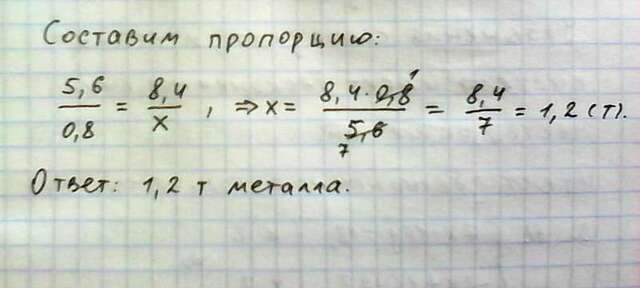 Составим пропорцию:
5,6/0,8 = 8,4/x , ⇒ x = 8,4 · 0,8 1/5,6 7 = 8,4/7 = 1,2 (т).
Ответ: 1,2 т металла.